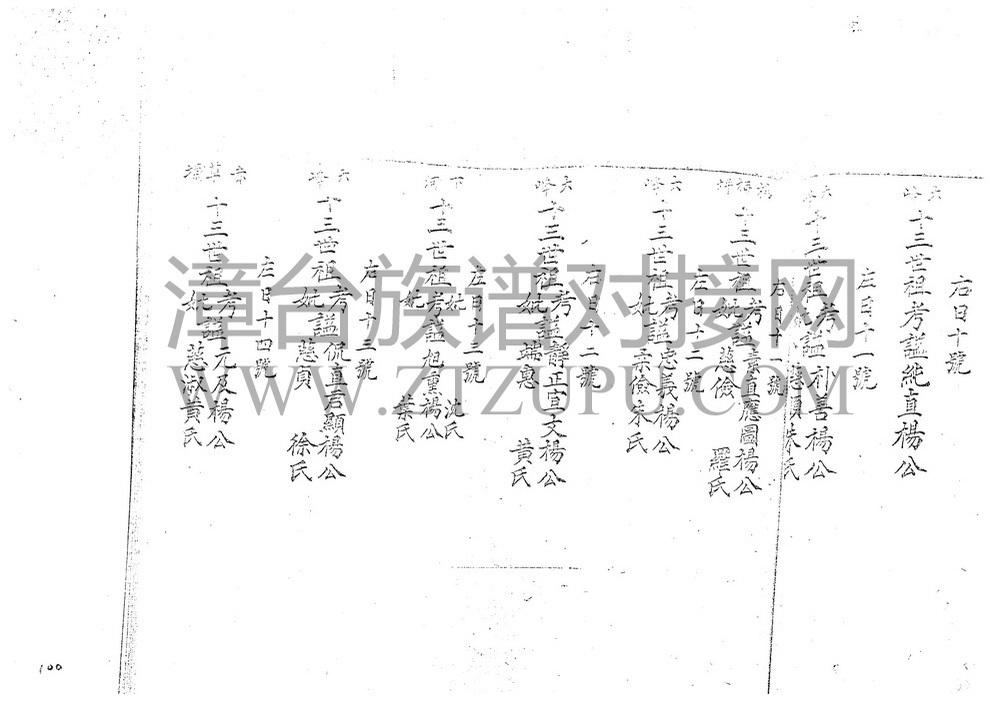 右日十號
六峰
十三世祖考謚純直楊公
左日十一號
六峰
十三世祖考謚朴善楊公
妣 朱氏
右日十一號
楊梅坪
十三世祖考謚素直應圖楊公
妣 慈儉 羅氏
左日十二號
六峰
十三世祖考謚忠義楊公
妣柔儉朱氏
右日十二號
六峰
十三世祖考謚靜正宣文楊公
妣 端惠 黄氏
左日十三號
下河
十三世祖考謚旭重楊公
妣 沈氏
妣 葉氏
右日十三號
六峰
十三世祖考謚侃直君顯楊公
妣 慈貞 徐氏
左日十四號
十三世祖考謚元及楊公
妣 慈淑黄氏
100
漳台族谱对接网
WWW.ZTZUPU.COM